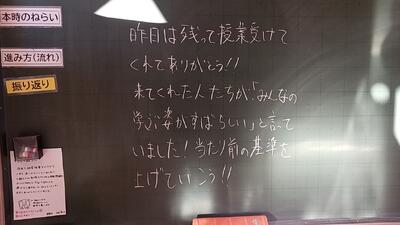 本時のねらい
進み方(流れ)
振り返り
昨日は残って授業受けて
くれてありがとう!!
来てくれた人たちが「みんなの
学ぶ姿がすばらしい」と言って
いました!当たり前の基準を
上げていこう!!